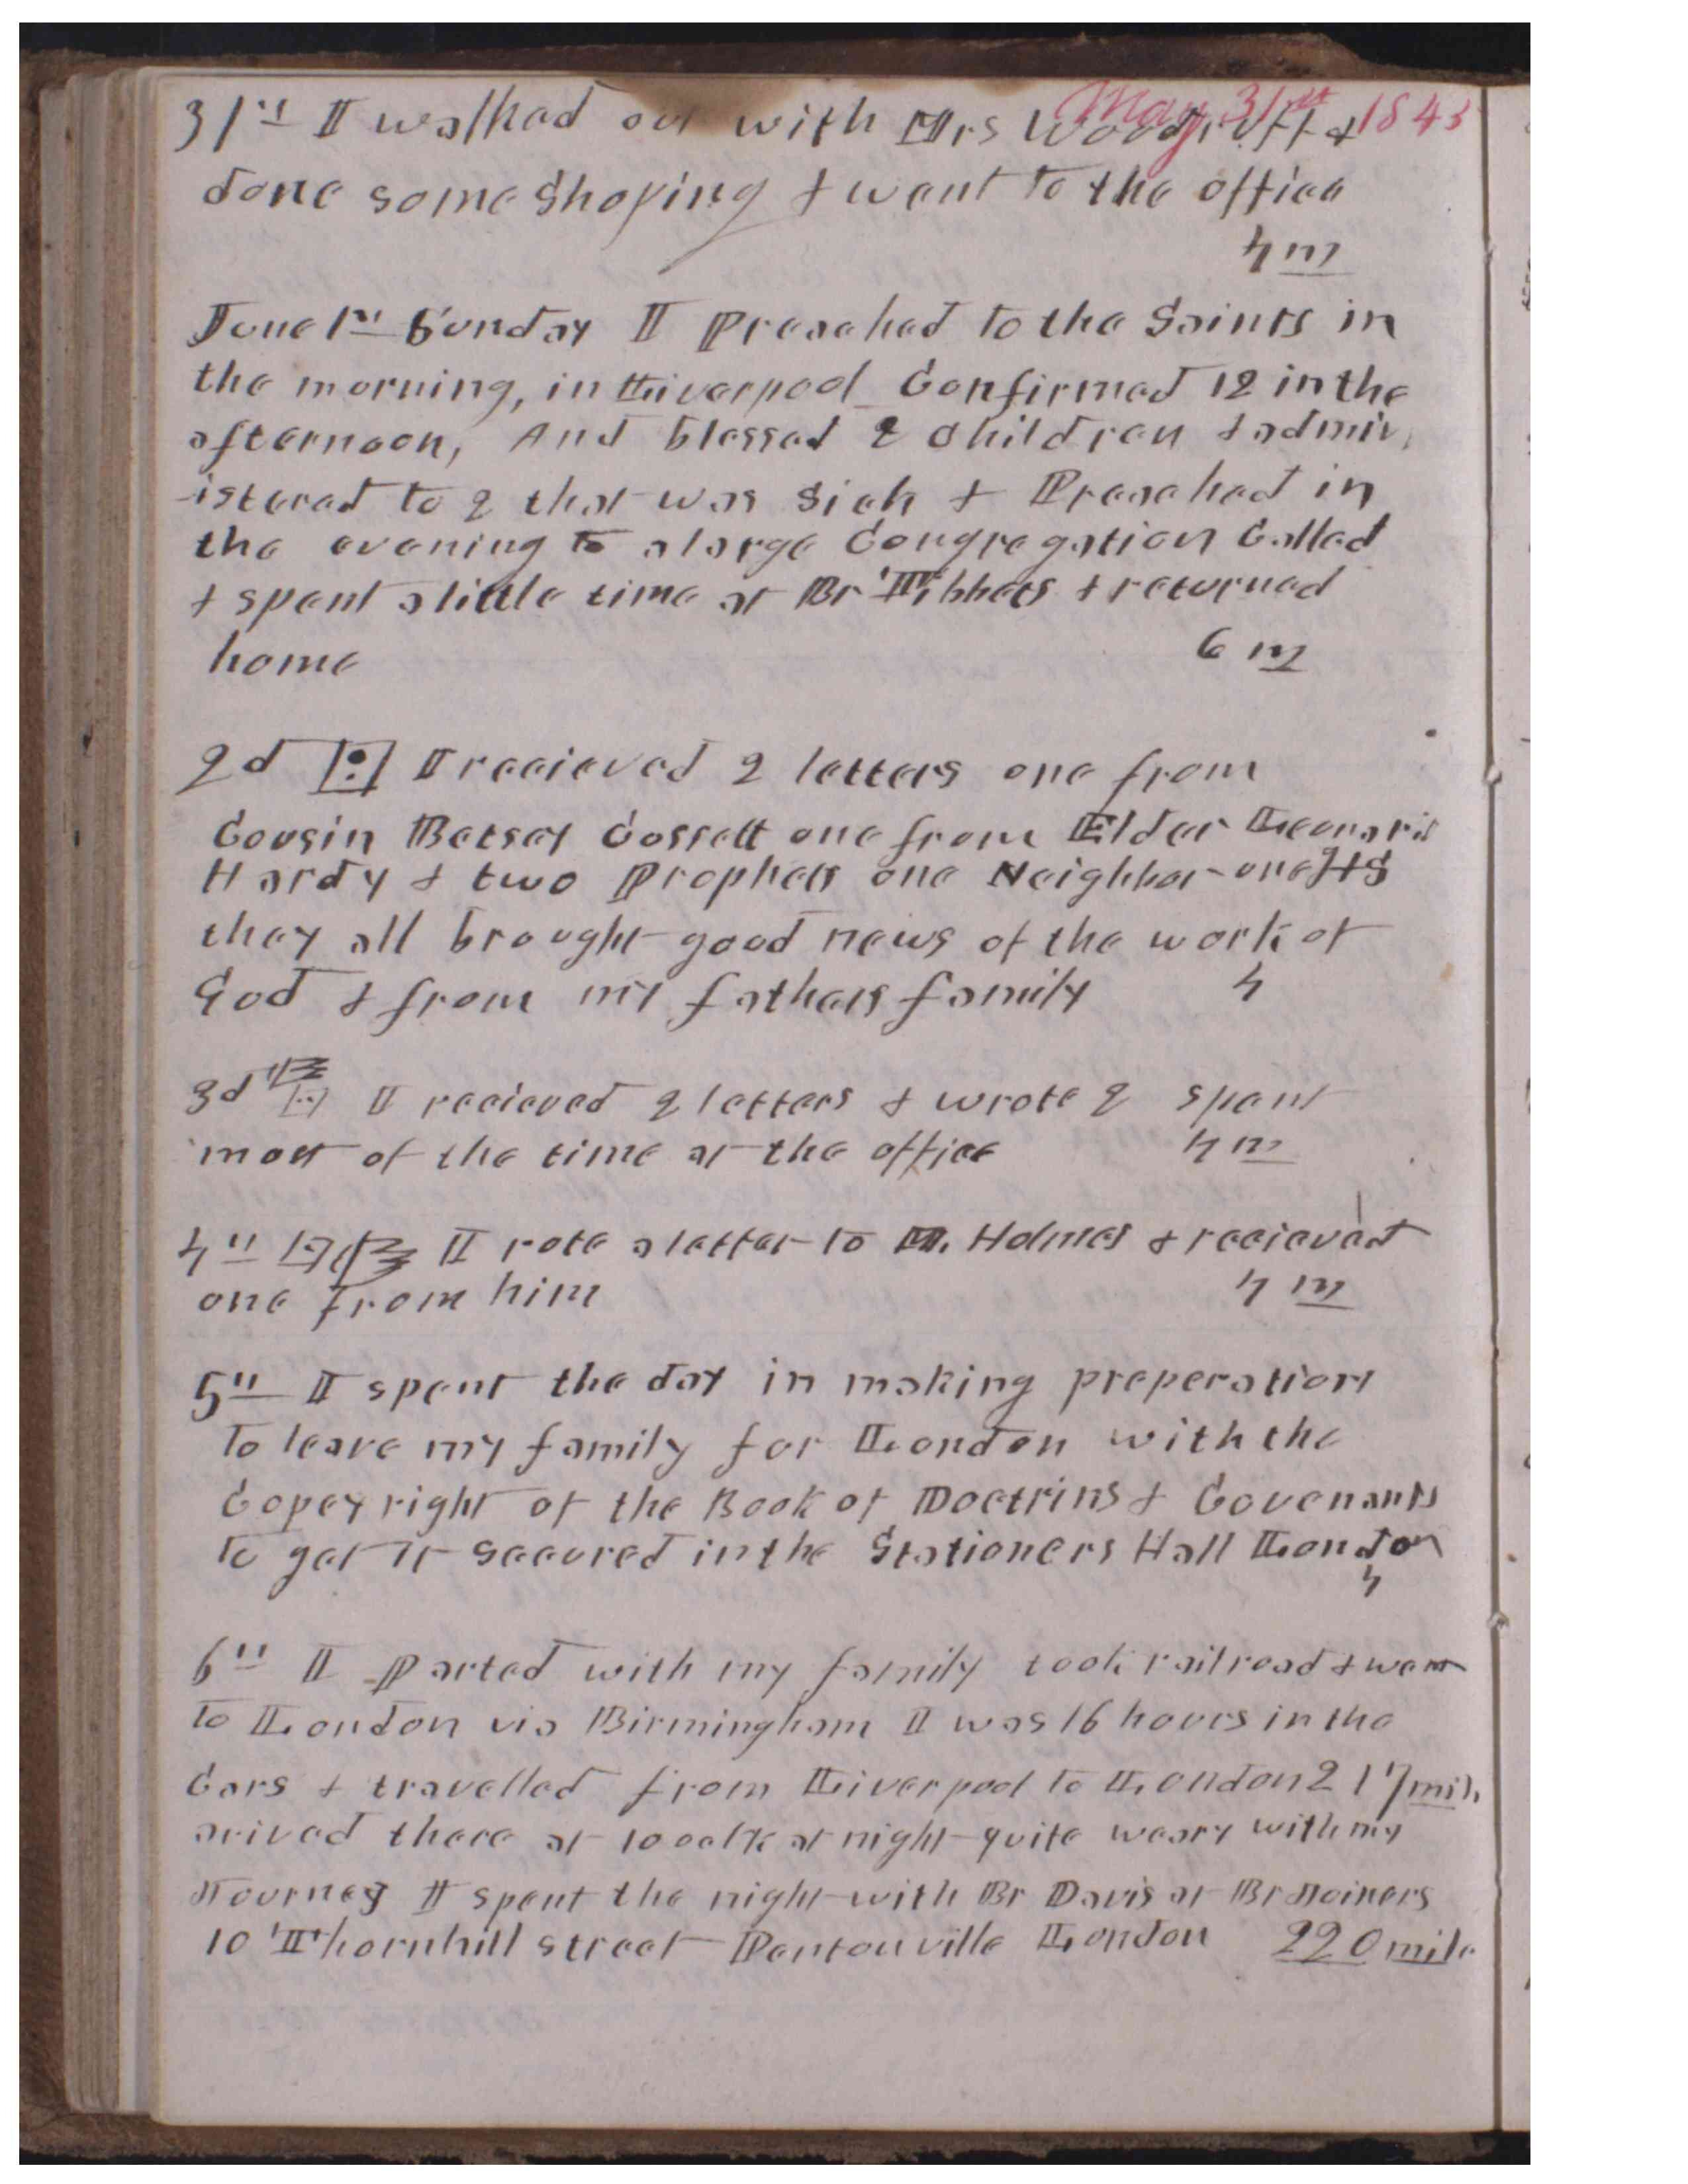 May 31st 1845
31st I walked out with Mrs Woodruff &
done some Shoping & went to the office
4 m
June 1st Sunday I Preached to the Saints in
the morning, in Liverpool Confirmed 12 in the
afternoon, And blessed 2 Children & admin
-istered to 2 that was Sick & Preached in
the evening to a large Congregation Called
& spent a little time at Br Tibbets & returned
home 6 m
2d I recieved 2 letters one from
Cousin Betsey Cossett one from Elder Leonard
Hardy & two Prophets one Neighbor one T&S
they all brought good news of the work of
God & from my fathers family 4
3d I recieved 2 letters & wrote 2 spent
most of the time at the office 4 m
4th I rote a letter to M. Holmes & recieved
one from him 4 m
5th I spent the day in making preperations
to leave my family for London with the
Copey right of the Book of Doctrins & Covenants
to get it secured in the Stationers Hall London
4
6th I Parted with my family took railroad & went
to London via Birmingham I was 16 hours in the
Cars & travelled from Liverpool to London 217 mil
arived there at 10 oclk at night quite weary with my
Journey I spent the night with Br Davis at Br
10 Thornhill street Pentonville London 220 mile